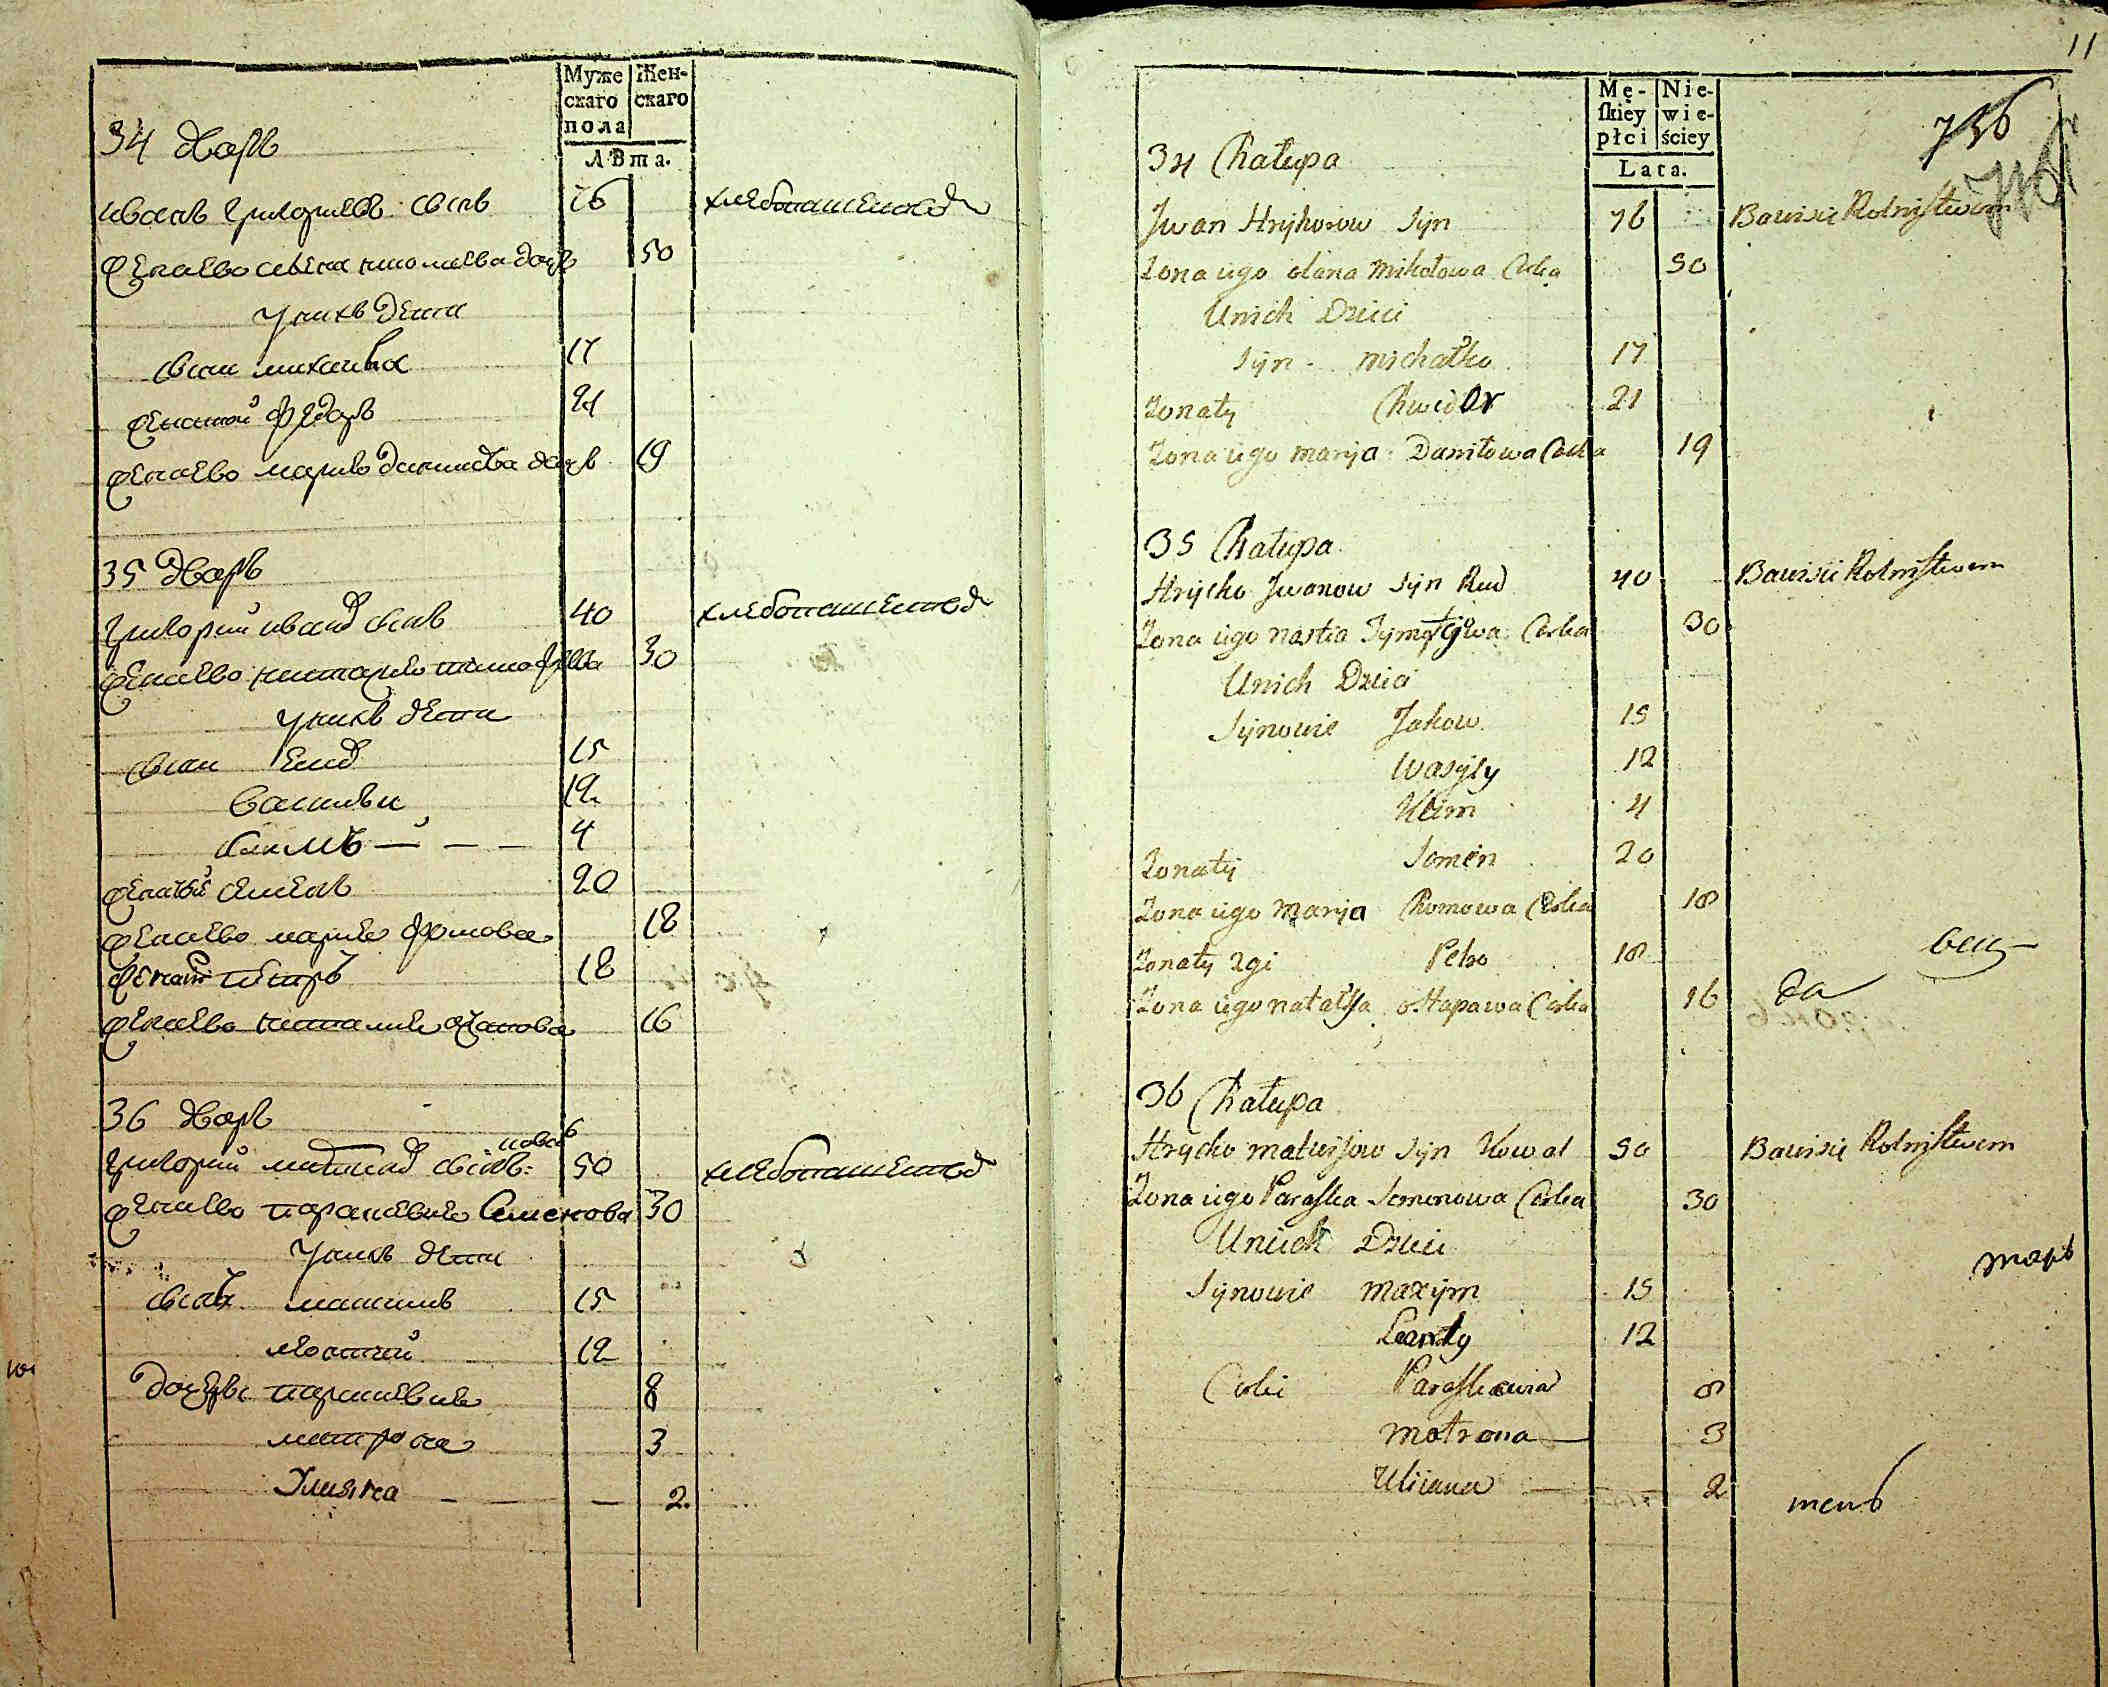 Муже
скаго
пола
Жен-
скаго
Лѣта.
34 дворъ
иванъ григорьевъ сынъ 76 хлебопашествомъ
жена ево олена николаева дочь 50
у нихъ дети
сын михаила 17
женатой федоръ 21
жена ево мария данилова дочь 19
35 дворъ
григорий иванов сынъ 40 хлебопашеством
жена ево настасия тимофеева 30
у нихъ дети
сыны 15
василии 12
климъ — — — 4
женатый семенъ 20
жена ево мария фомова 18
женат петръ 18
жена ево наталия 16
36 дворъ
григорий сынъ 50 хлебопашеством
жена ево параскевия Семенова 30
у нихъ дети
сынъ максимъ 15
12
дочери параскевия 8
матрона 3
Улияна — — — 2.
11
Mę-
skiey
płci
Nie-
wie-
ściey
Lata.
756
34 Chałupa
Jwan Hryhorow Syn 76 Bawisie Rolnistwem
Zona iego olana Mikołowa Corka 50
Unich Dzieci
Syn - Michałko 17
Zonaty Chwedor 21
Zona iego Marya Daniłowa Corka 19
35 Chałupa
Hrycko Jwanow Syn Rud 40 Bawisie Rolnistwem
Zona iego nastia Tymofyiwa Corka 30
Unich Dzieci
Synowie Jakow 15
Wasyly 12
Klim 4
Zonaty Semen 20
Zona iego Marya Chomowa Corka 18
Zonaty 2gi Petro 18
Zona iego natalija ostapowa Corka 16
да
36 Chałupa
Hrycko matwijow Syn Kowal 50 Bawisie Rolnistwem
Zona iego Paraska Semenowa Corka 30
Unich Dzieci
Synowie Maxym 15
12
Corki Paraskewia 8
Motrona — 3
Uliiana — — 2